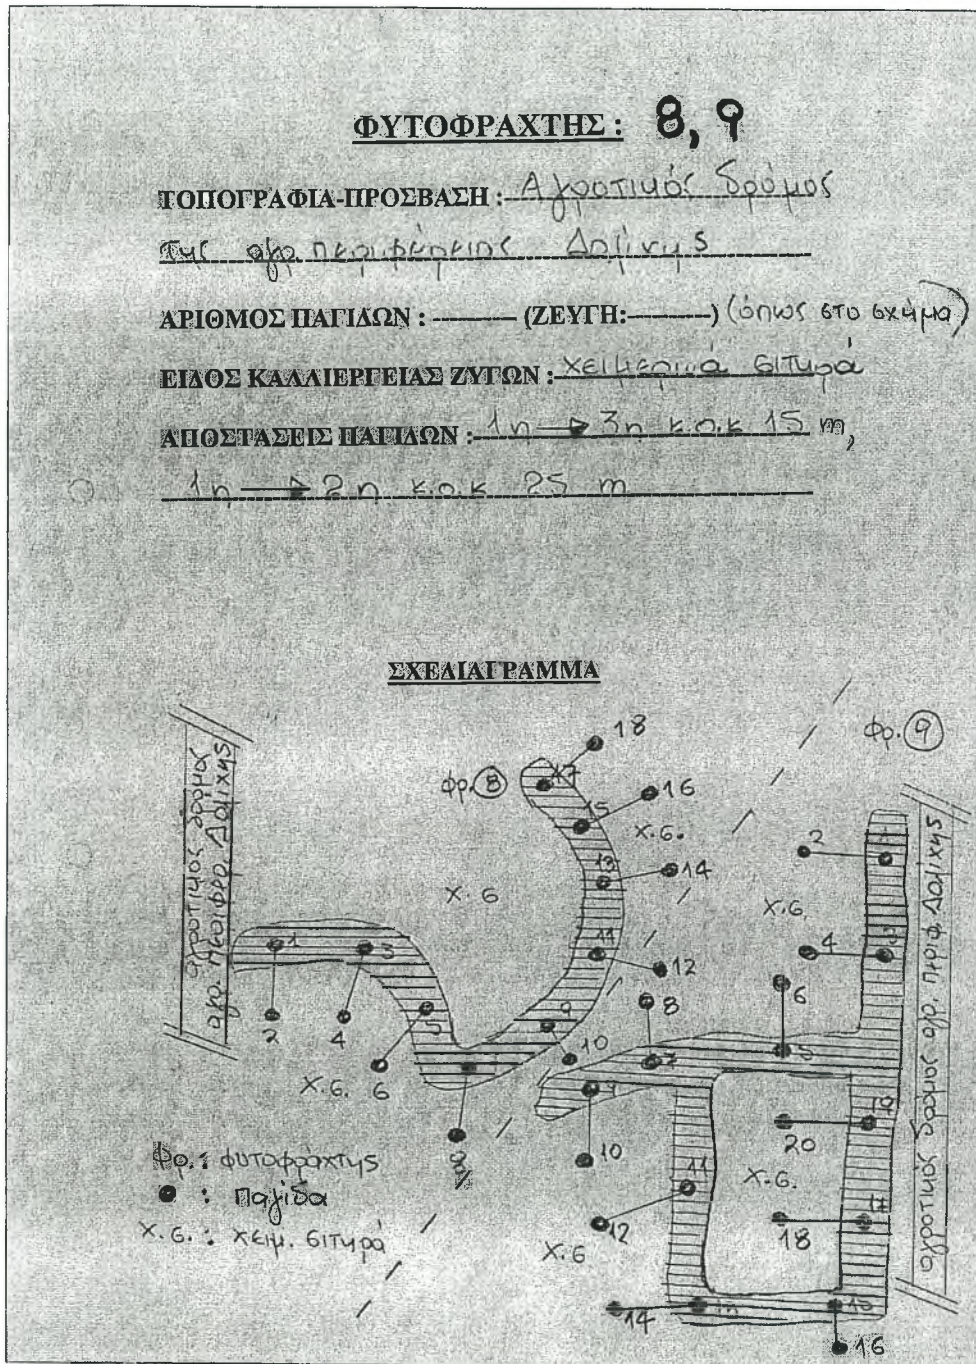 ΦΥΤΟΦΡΑΧΤΗΣ : 8, 9
ΤΟΠΟΓΡΑΦΙΑ-ΠΡΟΣΒΑΣΗ : Αγροτικός δρόμος
της αγρ. περιφέρειας
ΑΡΙΘΜΟΣ ΠΑΓΙΔΩΝ : ------ (ΖΕΥΓΗ:------) (όπως στο σχήμα)
ΕΙΔΟΣ ΚΑΛΛΙΕΡΓΕΙΑΣ ΖΥΓΩΝ : χειμερινά σιτηρά
ΑΠΟΣΤΑΣΕΙΣ ΠΑΓΙΔΩΝ : 1η → 3η κ.ο.κ 15 m,
1η → 2η κ.ο.κ 25 m
ΣΧΕΔΙΑΓΡΑΜΜΑ
αγροτικός δρόμος
αγρ. περιφέρ.
φρ. 8
18
17
16
15
Χ.σ.
13
14
Χ.σ
11
12
1
3
2
4
5
9
10
Χ.σ.
6
φρ. 9
2
Χ.σ.
4
6
8
7
5
9
10
19
20
11
Χ.σ.
12
Χ.σ
17
18
14
15
16
αγροτικός δρόμος αγρ. περιφ.
Φρ. : φυτοφράχτης
● : παγίδα
Χ.σ. : χειμ. σιτηρά